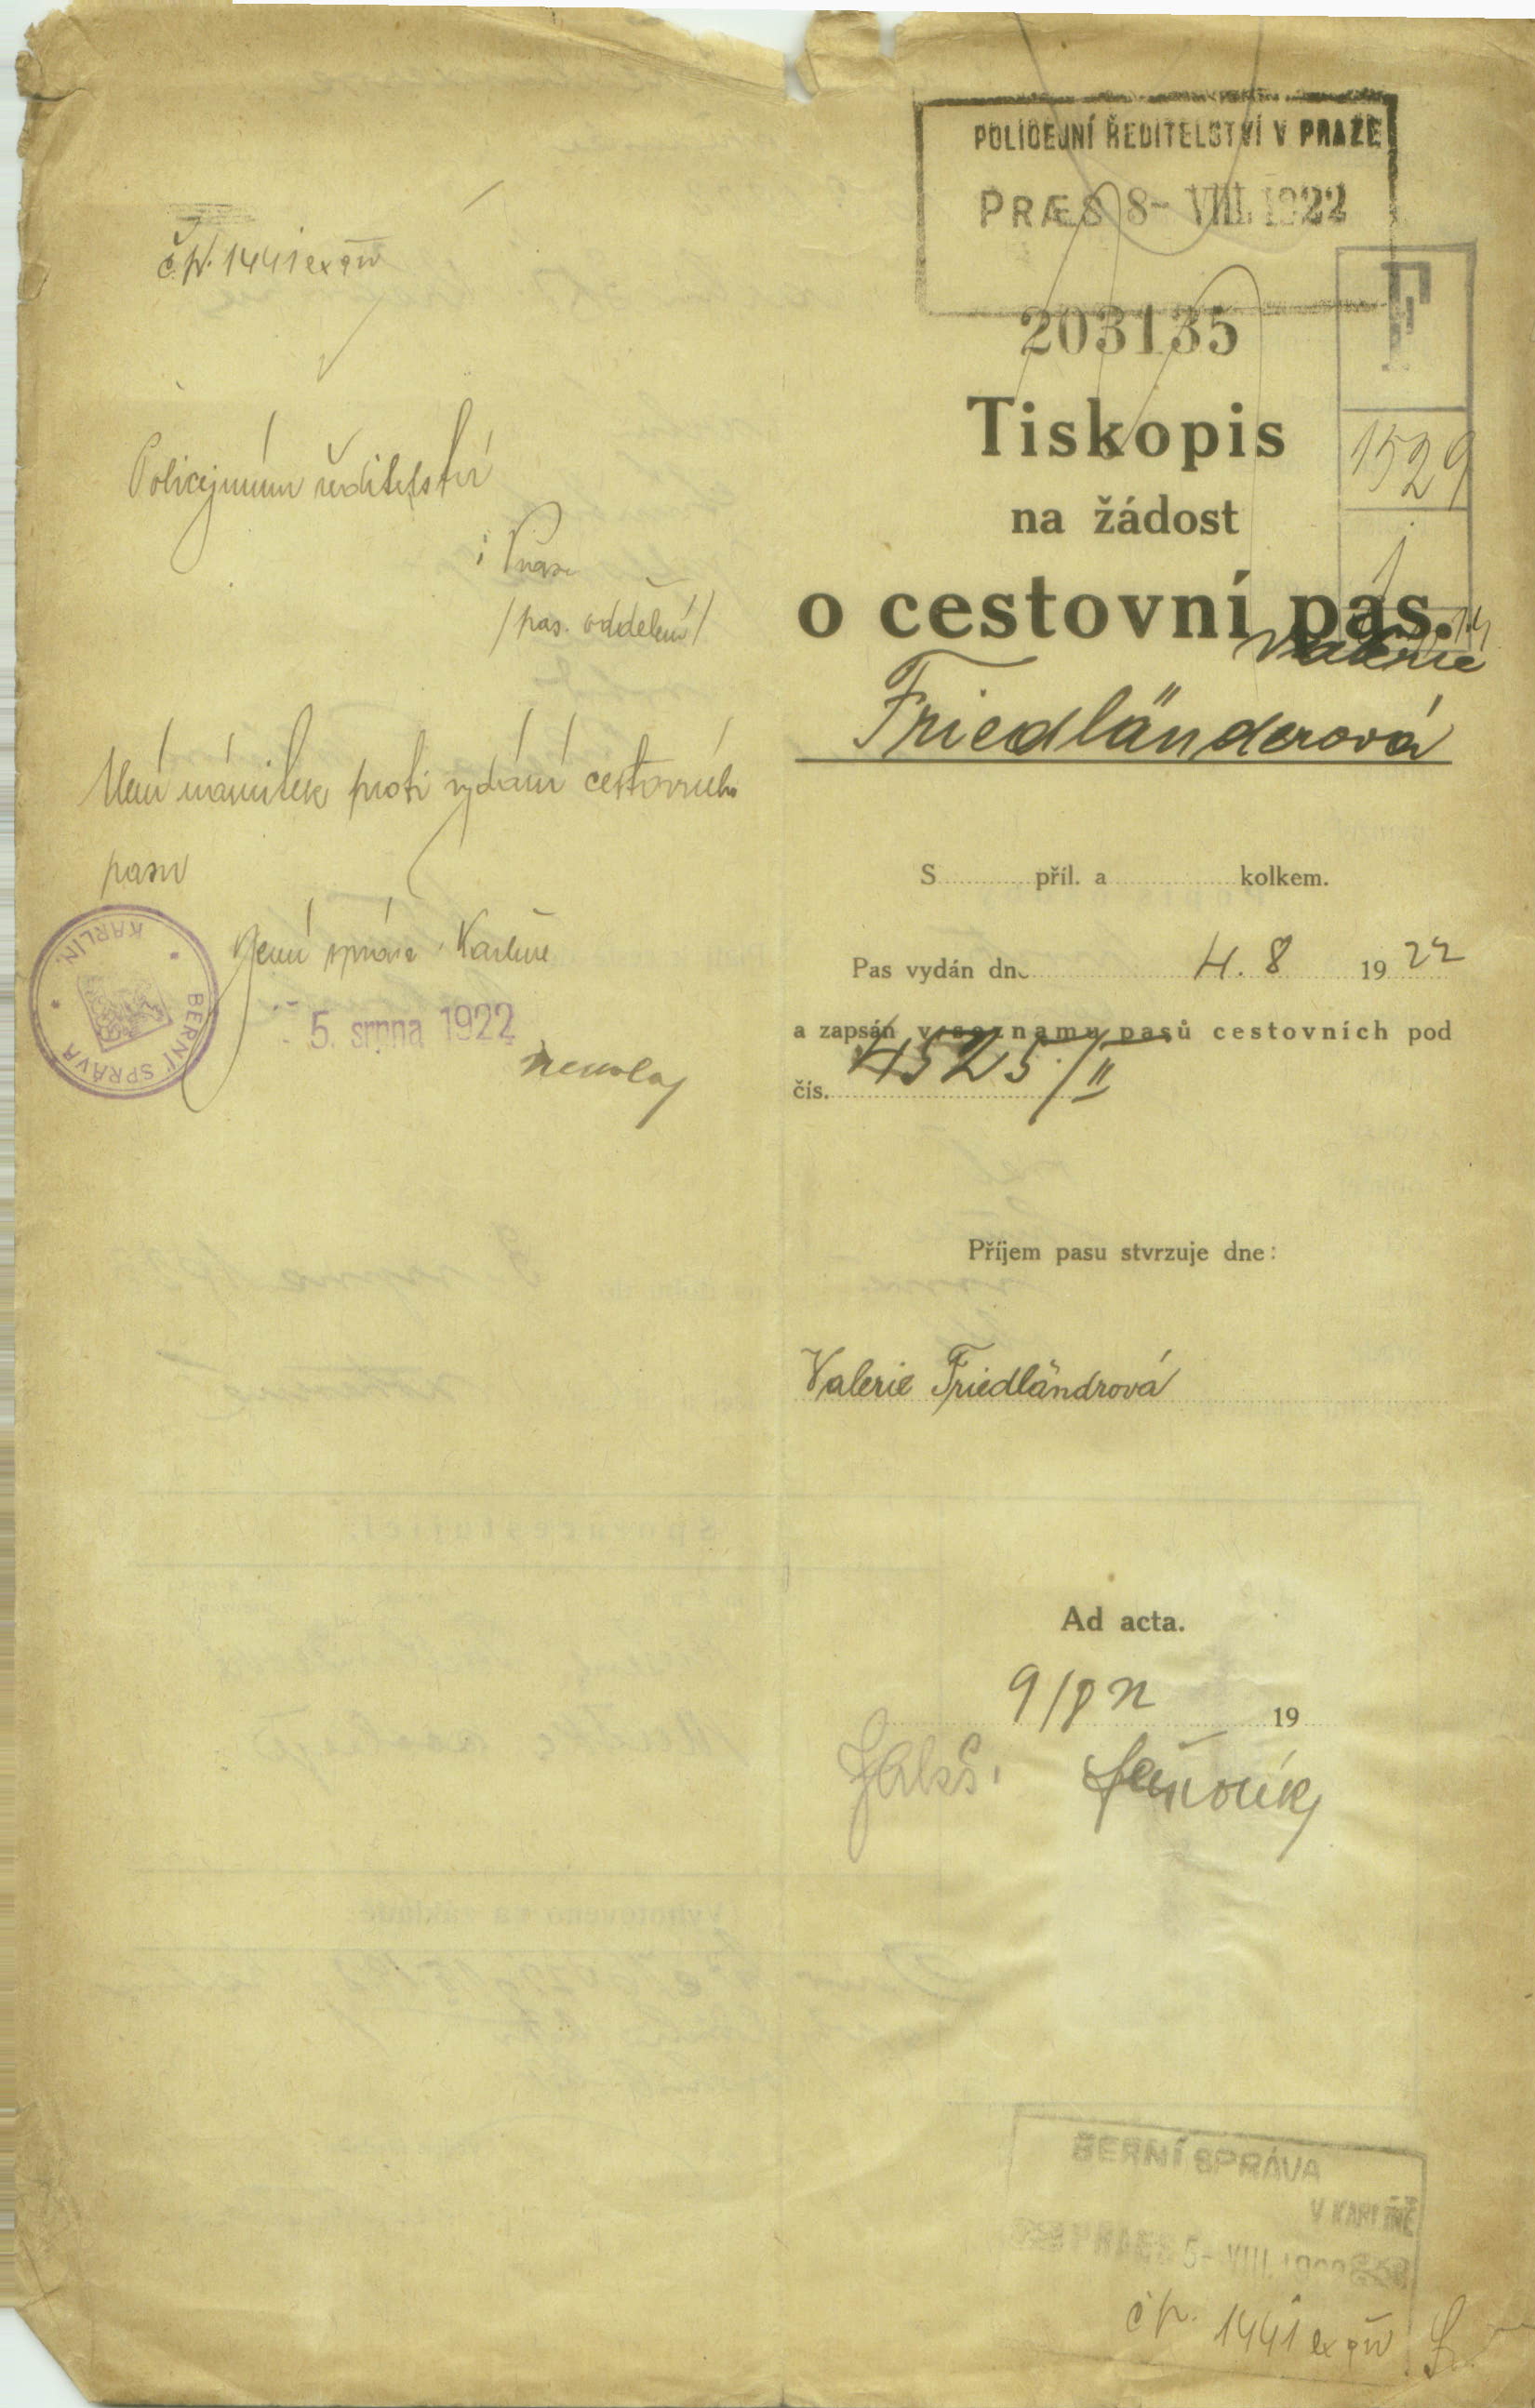 č.p. 1441 ex
Policejnímu ředitelství
v Praze
/pas. oddělení/
Není námitek proti vydání cestovního
pasu
Berní správa v Karlíně
BERNÍ SPRÁVA KARLÍN.
5. srpna 1922
POLICEJNÍ ŘEDITELSTVÍ V PRAZE
PRÆS 8- VIII. 1922
203135
F
1529
Tiskopis
na žádost
o cestovní pas.
Valerie
Friedländerová
S příl. a kolkem.
Pas vydán dne 4. 8 1922
a zapsán v seznamu pasů cestovních pod
čís. 4525/II
Příjem pasu stvrzuje dne:
Valerie Friedländrová
Ad acta.
9/8 22 19
BERNÍ SPRÁVA
V KARLÍNĚ
PRAES 5- VIII. 1922
čp. 1441 ex